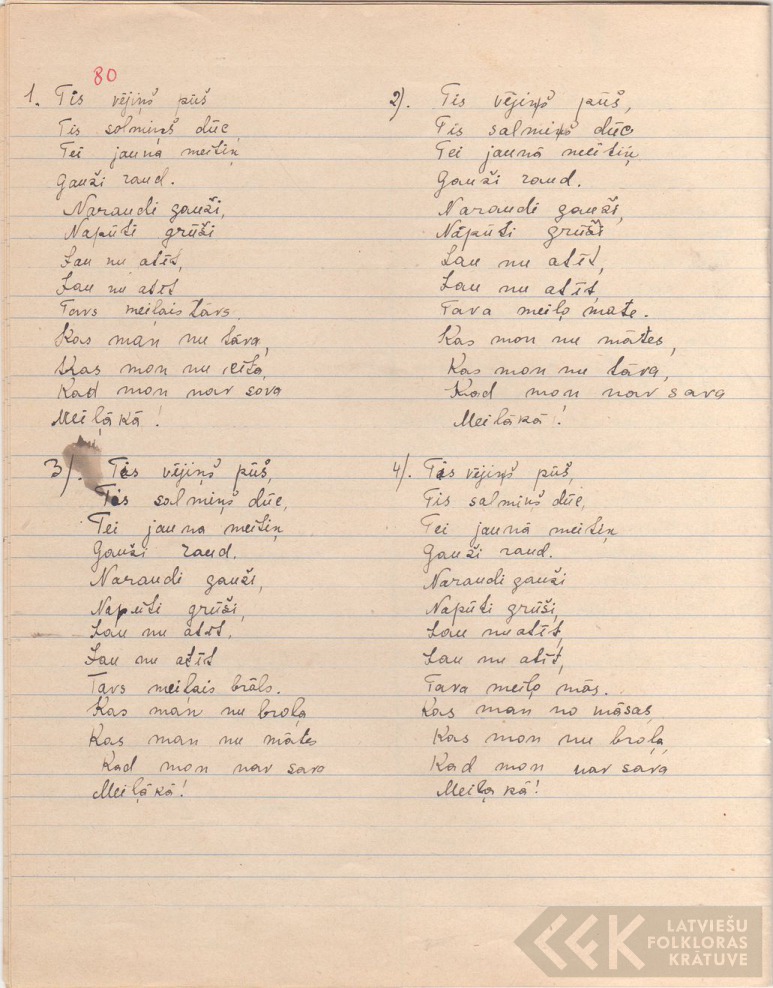 80
1. Tis vējiņš pūš
Tis salmiņš dūc
Tei jaunā meitiņ
Gauži raud.
Naraudi gauži,
Napūti grūši
Jau nu atīt,
Jau nu atīt
Tavs meilais tāvs.
Kas man nu tāva,
Kas mon nu cīta,
Kad mon nav sova
Meiļākā!
2). Tis vējiņš pūš,
Tis salmiņš dūc
Tei jaunā meitiņ
Gauži raud.
Naraudi gauži,
Napūti grūši
Jau nu atīt,
Jau nu atīt,
Tava meiļo mate.
Kas mon nu mātes,
Kas mon nu tāva,
Kad mon nav sava
Meiļākā!
3). Tis vējiņš pūš,
Tis salmiņš dūc,
Tei jauna meitiņ
Gauži raud.
Naraudi gauži,
Napūti grūši,
Jau nu atīt,
Jau nu atīt
Tavs meiļais brāls.
Kas man nu broļa
Kas man nu mātes
Kad mon nav savo
Meiļākā!
4). Tis vējiņš pūš,
Tis salmiņš dūc,
Tei jaunā meitiņ
Gauži raud.
Naraudi gauži
Napūti grūši,
Jau nu atīt,
Jau nu atīt,
Tava meiļo mās.
Kas man no māsas,
Kas mon nu broļa,
Kad mon nav sava
Meiļa kā!
LATVIEŠU
FOLKLORAS
KRĀTUVE